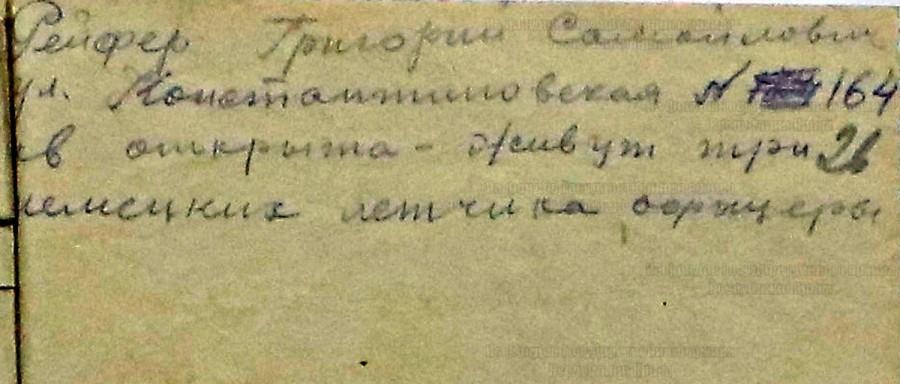 Рейфер Григорий Самойлович
ул. Константиновская № 164
кв открыта - живут три 26
немецких летчика офицеры